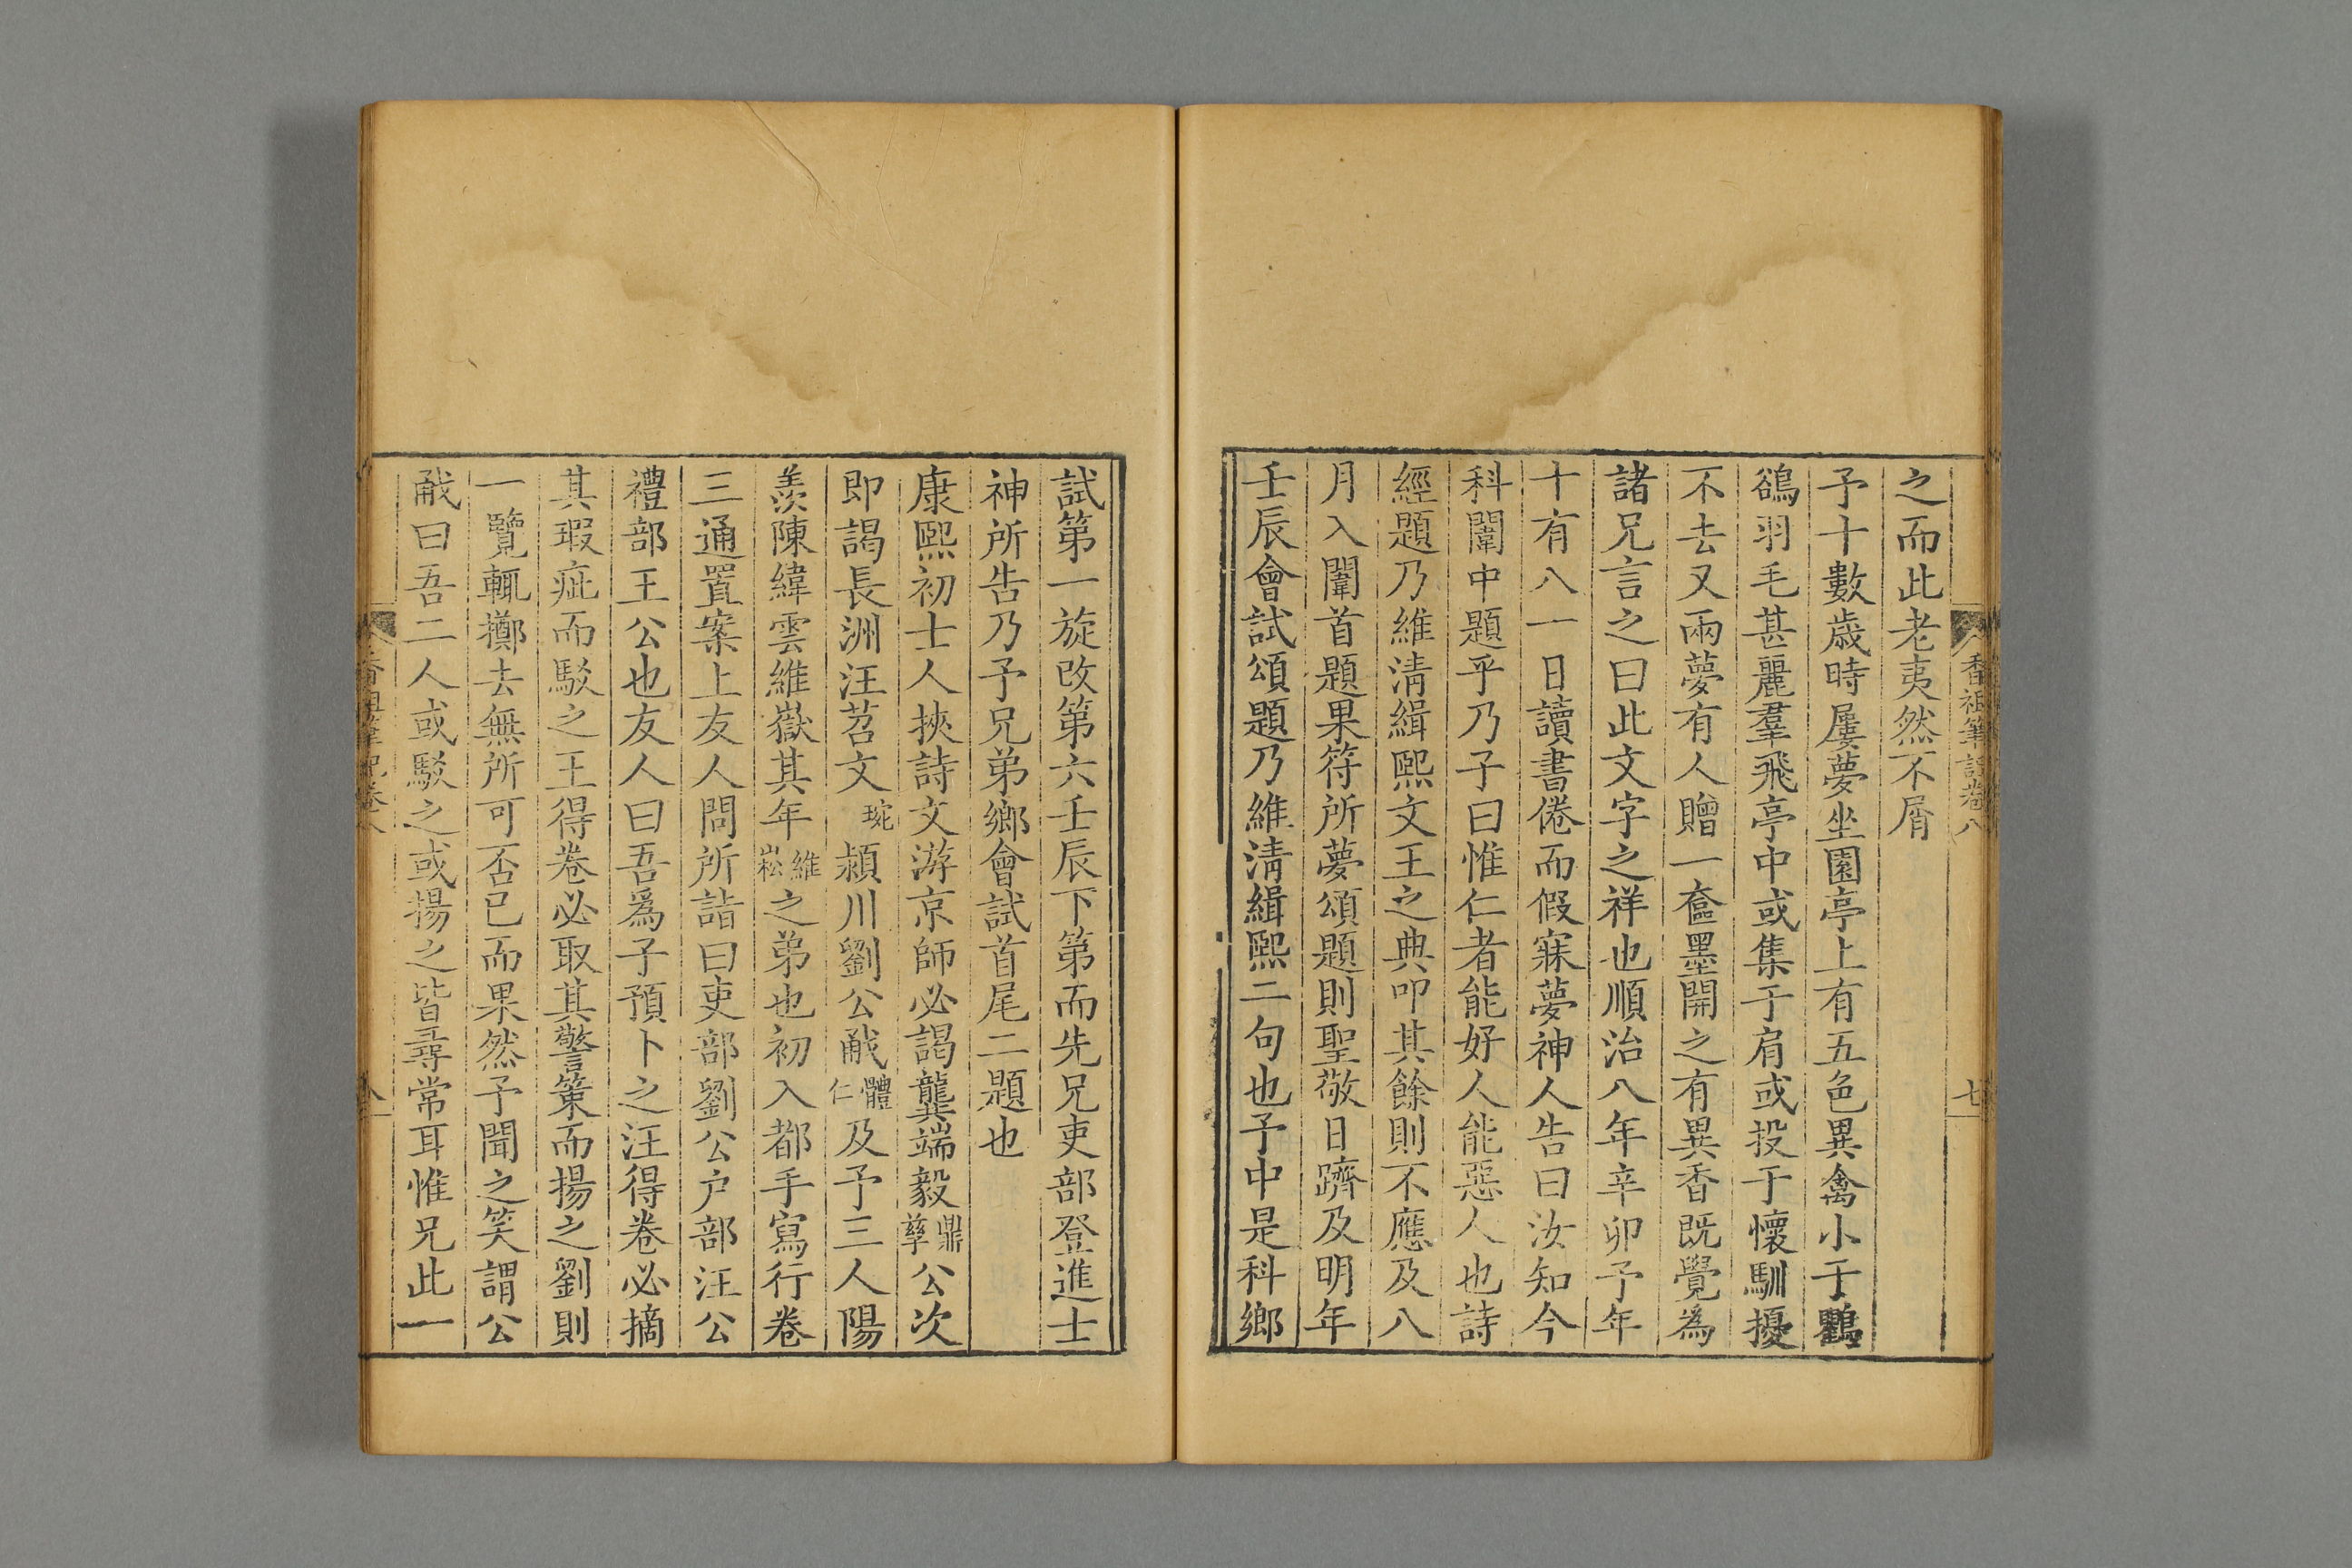 香祖筆記卷八
七
之而此老夷然不屑
予十數歲時屢夢坐園亭上有五色異禽小于鸜
鵒羽毛甚麗羣飛亭中或集于肩或投于懷馴擾
不去又兩夢有人贈一奩墨開之有異香既覺爲
諸兄言之曰此文字之祥也順治八年辛卯予年
十有八一日讀書倦而假寐夢神人告曰汝知今
科闈中題乎乃子曰惟仁者能好人能惡人也詩
經題乃維淸緝熙文王之典叩其餘則不應及八
月入闈首題果符所夢頌題則聖敬日躋及明年
壬辰會試頌題乃維淸緝熙二句也予中是科鄉
試第一旋改第六壬辰下第而先兄吏部登進士
神所告乃予兄弟鄉會試首尾二題也
康熙初士人挾詩文游京師必謁龔端毅鼎孳公次
即謁長洲汪苕文琬潁川劉公㦷體仁及予三人陽
羨陳緯雲維嶽其年維崧之弟也初入都手寫行卷
三通置案上友人問所詣曰吏部劉公户部汪公
禮部王公也友人曰吾爲子預卜之汪得卷必摘
其瑕疵而駁之王得卷必取其警策而揚之劉則
一覽輒擲去無所可否已而果然予聞之笑謂公
㦷曰吾二人或駁之或揚之皆尋常耳惟兄此一
香祖筆記卷八
八